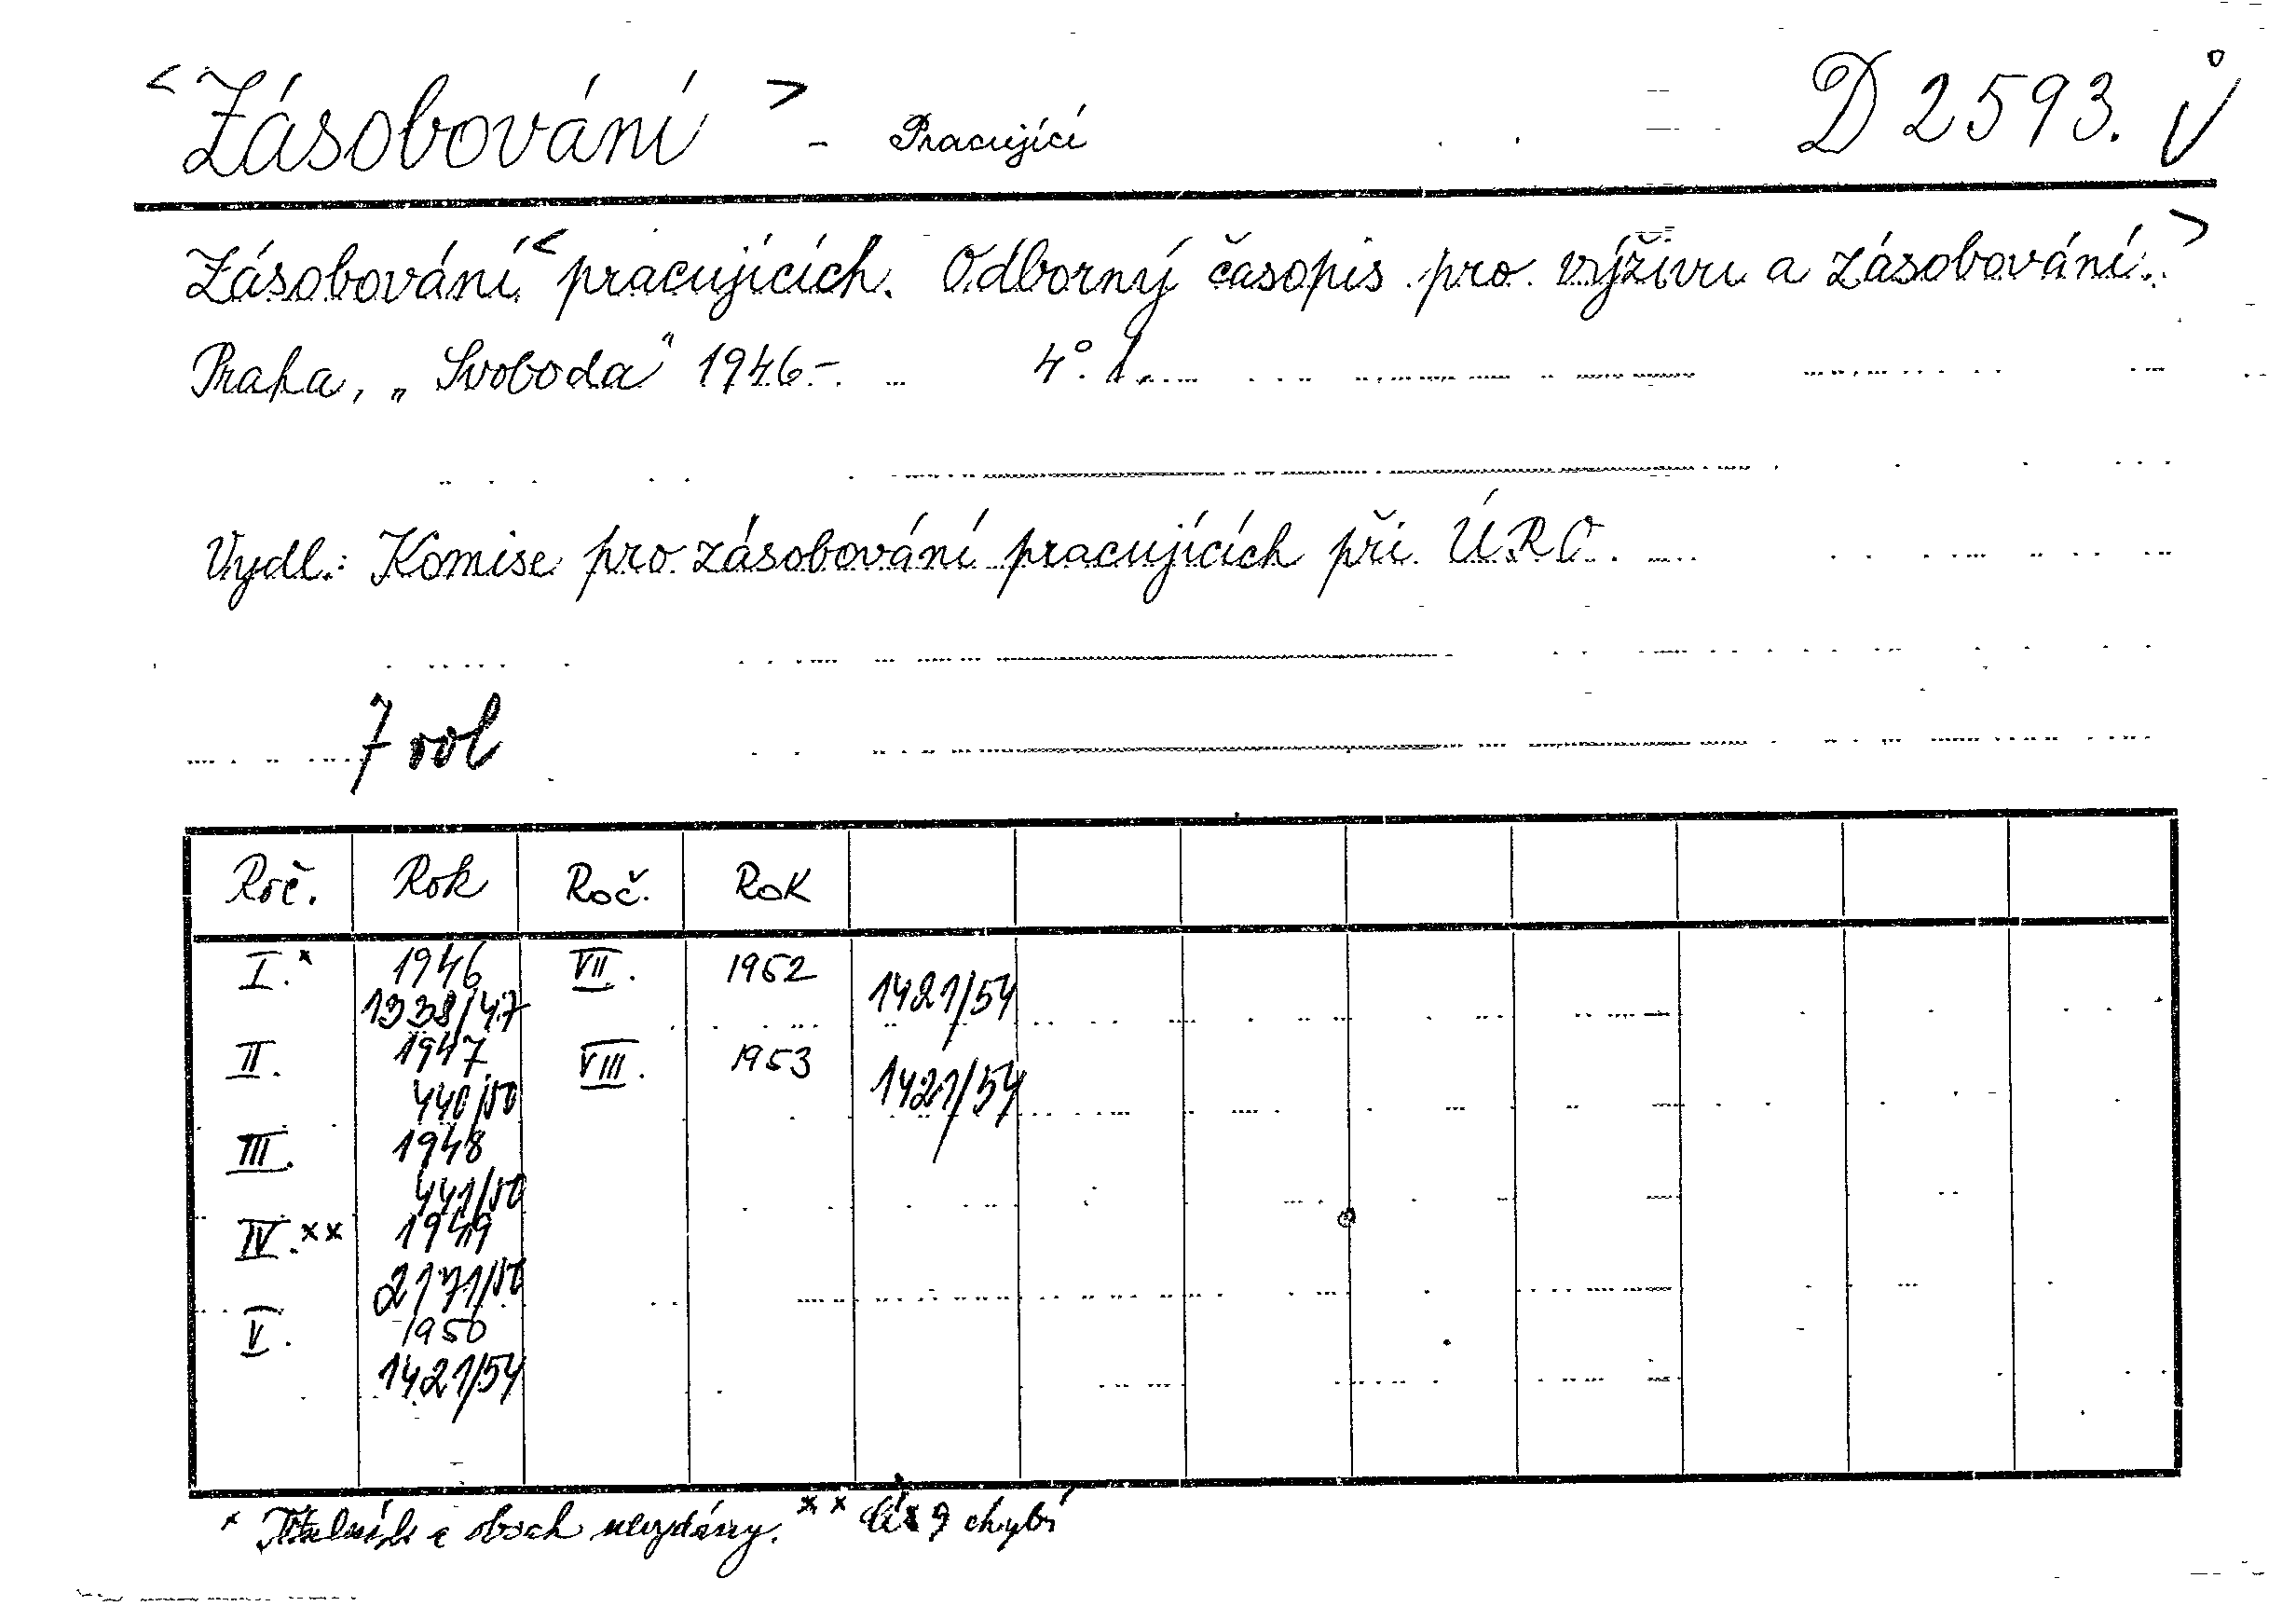 < Zásobování > - Pracující D 2593. v̊
Zásobování < pracujících. Odborný časopis pro výživu a zásobování. >
Praha, „Svoboda" 1946.- 4°. 1.
Vydl.: Komise pro zásobování pracujících při ÚRO.
7 vol
Roč. Rok Roč. Rok
I.* 1946 VII. 1952 1421/54
1338/47
II. 1947 VIII. 1953 1421/54
440/50
III. 1948
441/50
IV.** 1949
2171/50
V. 1950
1421/54
* Titulní l. a obsah nevydány. ** čís 9 chybí